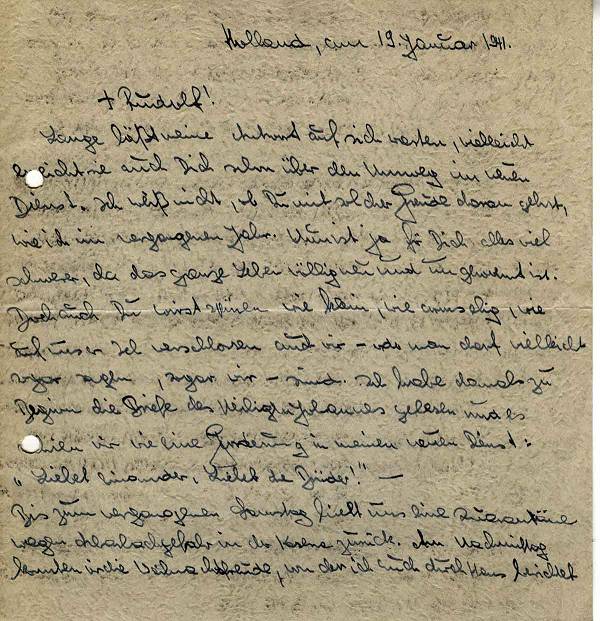 Holland, am 19. Januar 1941.
+ Rudolf!
Lange läßt meine Antwort auf sich warten, vielleicht
erreicht sie auch Dich schon über den Umweg im neuen
Dienst. Ich weiß nicht, ob Du mit solcher Freude daran gehst,
wie ich im vergangenen Jahr. Nun ist ja für Dich alles viel
schwerer, da das ganze Leben völlig neu und ungewohnt ist.
Doch auch Du wirst spüren wie klein, wie armselig, wie
auf unser Ich verschlossen auch wir – oder man darf vielleicht
sogar sagen, sogar wir – sind. Ich habe damals zu
Beginn die Briefe des Heiligen Johannes gelesen und es
schien mir wie eine Forderung in meinen neuen Dienst:
„Liebet einander, Liebet die Brüder!" –
Bis zum vergangenen Samstag hielt uns eine Quarantäne
wegen Scharlachgefahr in der Kaserne zurück. Am Nachmittag
konnten wir die Weihnachtsfreude, von der ich auch durch Hans berichtet